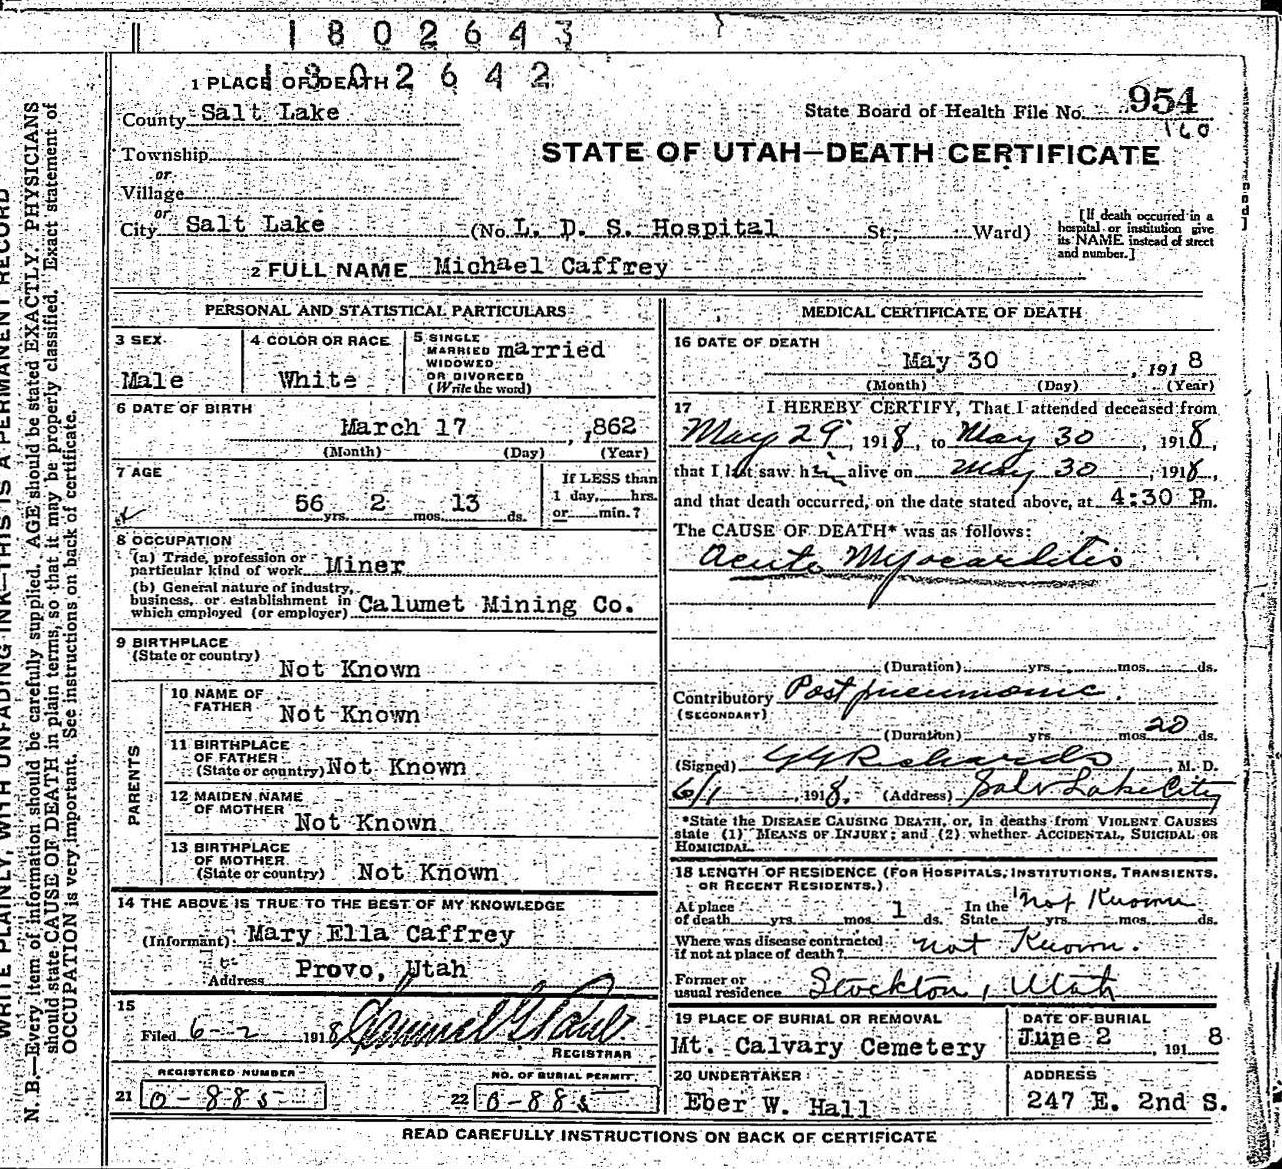 1802643
1802642
1 PLACE OF DEATH
County Salt Lake
State Board of Health File No. 954
160
Township
or
Village
or
City Salt Lake (No. L. D. S. Hospital St.; Ward)
STATE OF UTAH—DEATH CERTIFICATE
[If death occurred in a
hospital or institution give
its NAME instead of street
and number.]
2 FULL NAME Michael Caffrey
PERSONAL AND STATISTICAL PARTICULARS
3 SEX
Male
4 COLOR OR RACE
White
5 SINGLE
MARRIED married
WIDOWED
OR DIVORCED
(Write the word)
6 DATE OF BIRTH
March 17, 1862
(Month) (Day) (Year)
7 AGE
56 yrs. 2 mos. 13 ds.
If LESS than
1 day, hrs.
or min.?
8 OCCUPATION
(a) Trade, profession or
particular kind of work Miner
(b) General nature of industry,
business, or establishment in
which employed (or employer) Calumet Mining Co.
9 BIRTHPLACE
(State or country)
Not Known
PARENTS
10 NAME OF
FATHER
Not Known
11 BIRTHPLACE
OF FATHER
(State or country) Not Known
12 MAIDEN NAME
OF MOTHER
Not Known
13 BIRTHPLACE
OF MOTHER
(State or country) Not Known
14 THE ABOVE IS TRUE TO THE BEST OF MY KNOWLEDGE
(Informant) Mary Ella Caffrey
Address Provo, Utah
15
Filed 6-2 1918
REGISTRAR
REGISTERED NUMBER
21 0-885
NO. OF BURIAL PERMIT
22 0-885
MEDICAL CERTIFICATE OF DEATH
16 DATE OF DEATH
May 30, 1918
(Month) (Day) (Year)
17 I HEREBY CERTIFY, That I attended deceased from
May 29, 1918, to May 30, 1918,
that I last saw him alive on May 30, 1918,
and that death occurred, on the date stated above, at 4:30 P m.
The CAUSE OF DEATH* was as follows:
Acute Myocarditis
(Duration) yrs. mos. ds.
Contributory Post pneumonic.
(SECONDARY)
(Duration) yrs. mos. 20 ds.
(Signed) GG Richards, M. D.
6/1, 1918. (Address) Salt Lake City
*State the DISEASE CAUSING DEATH, or, in deaths from VIOLENT CAUSES
state (1) MEANS OF INJURY; and (2) whether ACCIDENTAL, SUICIDAL OR
HOMICIDAL.
18 LENGTH OF RESIDENCE (FOR HOSPITALS, INSTITUTIONS, TRANSIENTS,
OR RECENT RESIDENTS.)
At place In the not Known
of death yrs. mos. 1 ds. State yrs. mos. ds.
Where was disease contracted
if not at place of death? not Known.
Former or
usual residence Stockton, Utah
19 PLACE OF BURIAL OR REMOVAL
Mt. Calvary Cemetery
DATE OF BURIAL
June 2, 1918
20 UNDERTAKER
Eber W. Hall
ADDRESS
247 E. 2nd S.
READ CAREFULLY INSTRUCTIONS ON BACK OF CERTIFICATE
WRITE PLAINLY, WITH UNFADING INK—THIS IS A PERMANENT RECORD
N. B.—Every item of information should be carefully supplied. AGE should be stated EXACTLY. PHYSICIANS
should state CAUSE OF DEATH in plain terms, so that it may be properly classified. Exact statement of
OCCUPATION is very important. See instructions on back of certificate.